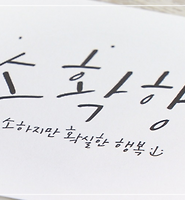 소확행
소하지만 확실한 행복